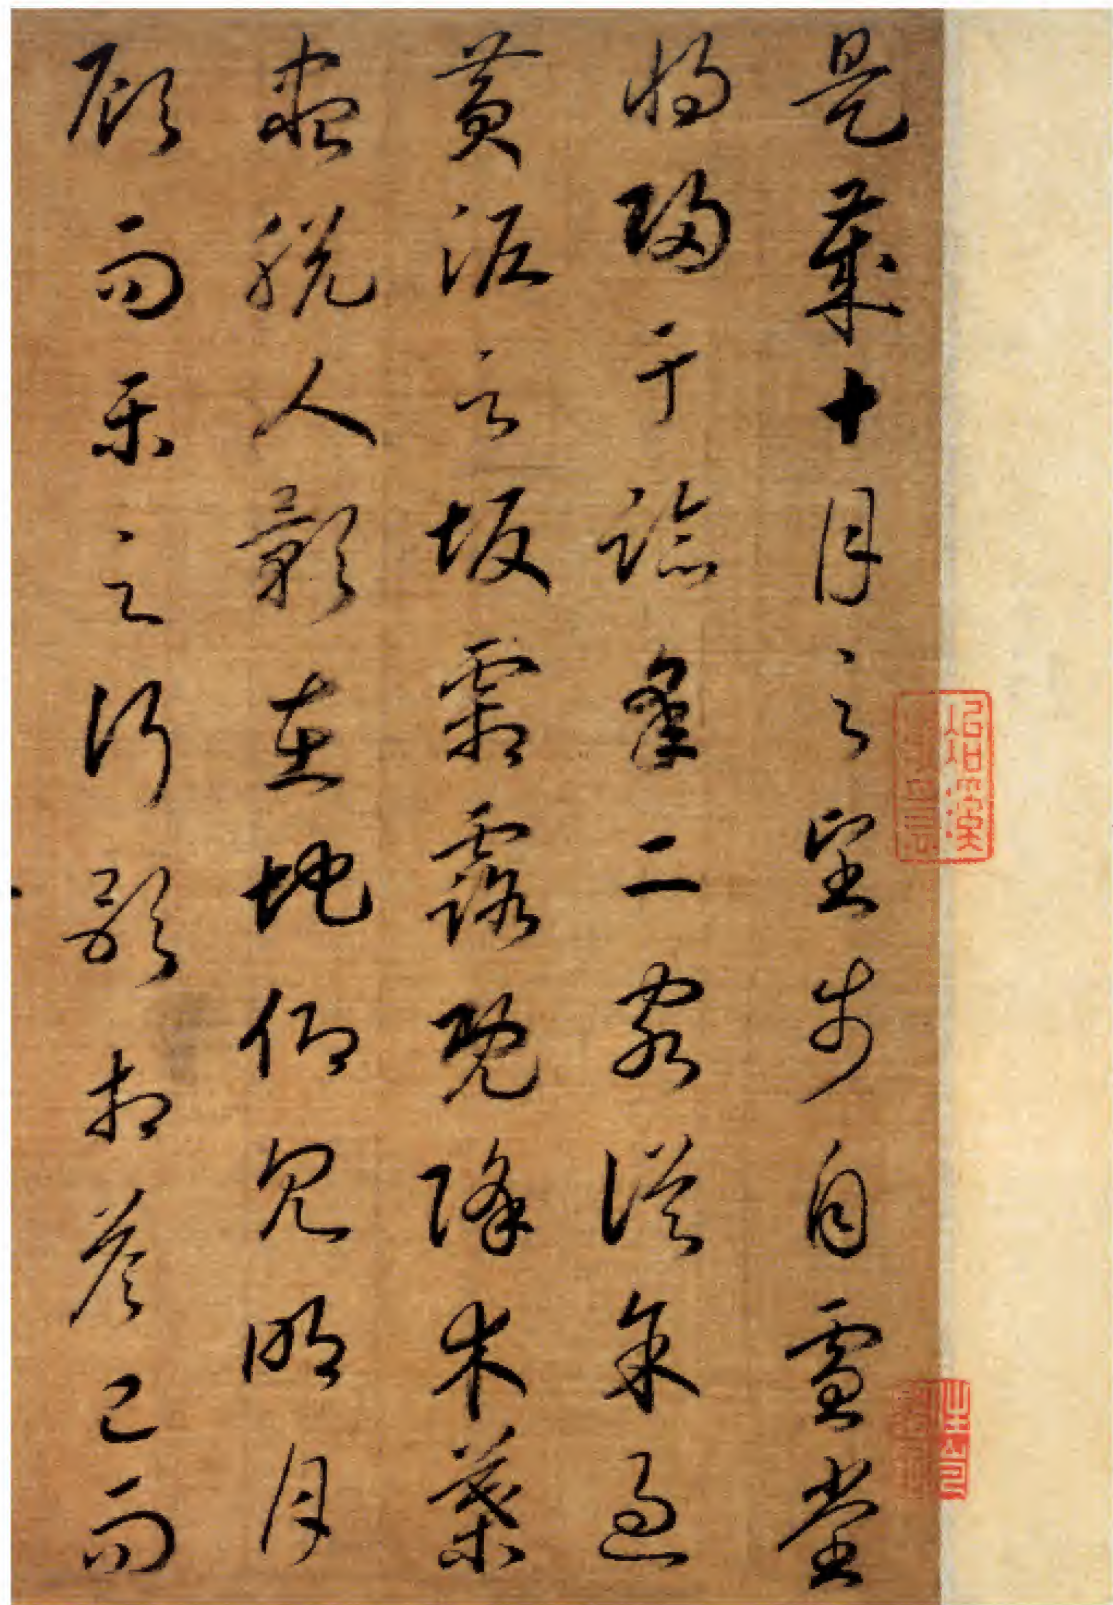 是歲十月之望步自雪堂
將歸于臨皋二客從余過
黃泥之坂霜露既降木葉
盡脫人影在地仰見明月
顧而樂之行歌相答已而